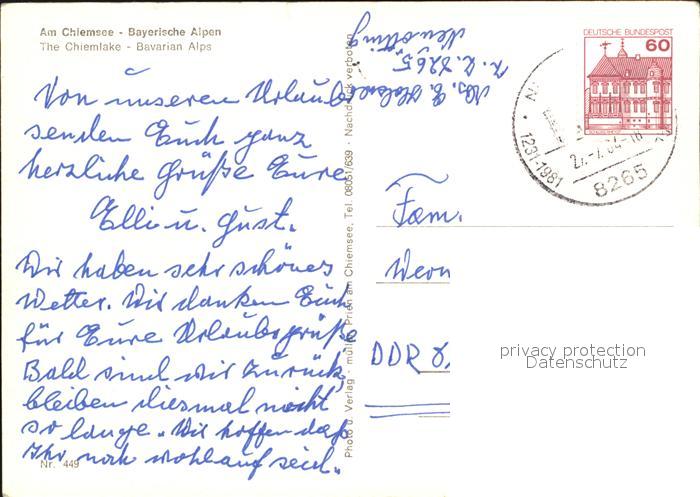 Am Chiemsee - Bayerische Alpen
The Chiemlake - Bavarian Alps
Von unseren Urlaub
senden Euch ganz
herzliche Grüße Eure
Elli u. Gust.
Wir haben sehr schönes
Wetter. Wir danken Euch
für Eure Urlaubsgrüße
Bald sind wir zurück,
bleiben diesmal nicht
so lange. Wir hoffen daß
Ihr noch wohlauf seid.
Nr. 449
Photo u. Verlag müller, Prien am Chiemsee, Tel. 08051/639 · Nachdruck verboten
8265
Neuötting
DEUTSCHE BUNDESPOST
60
1231-1981
8265
Fam.
Wern
DDR 8
privacy protection
Datenschutz